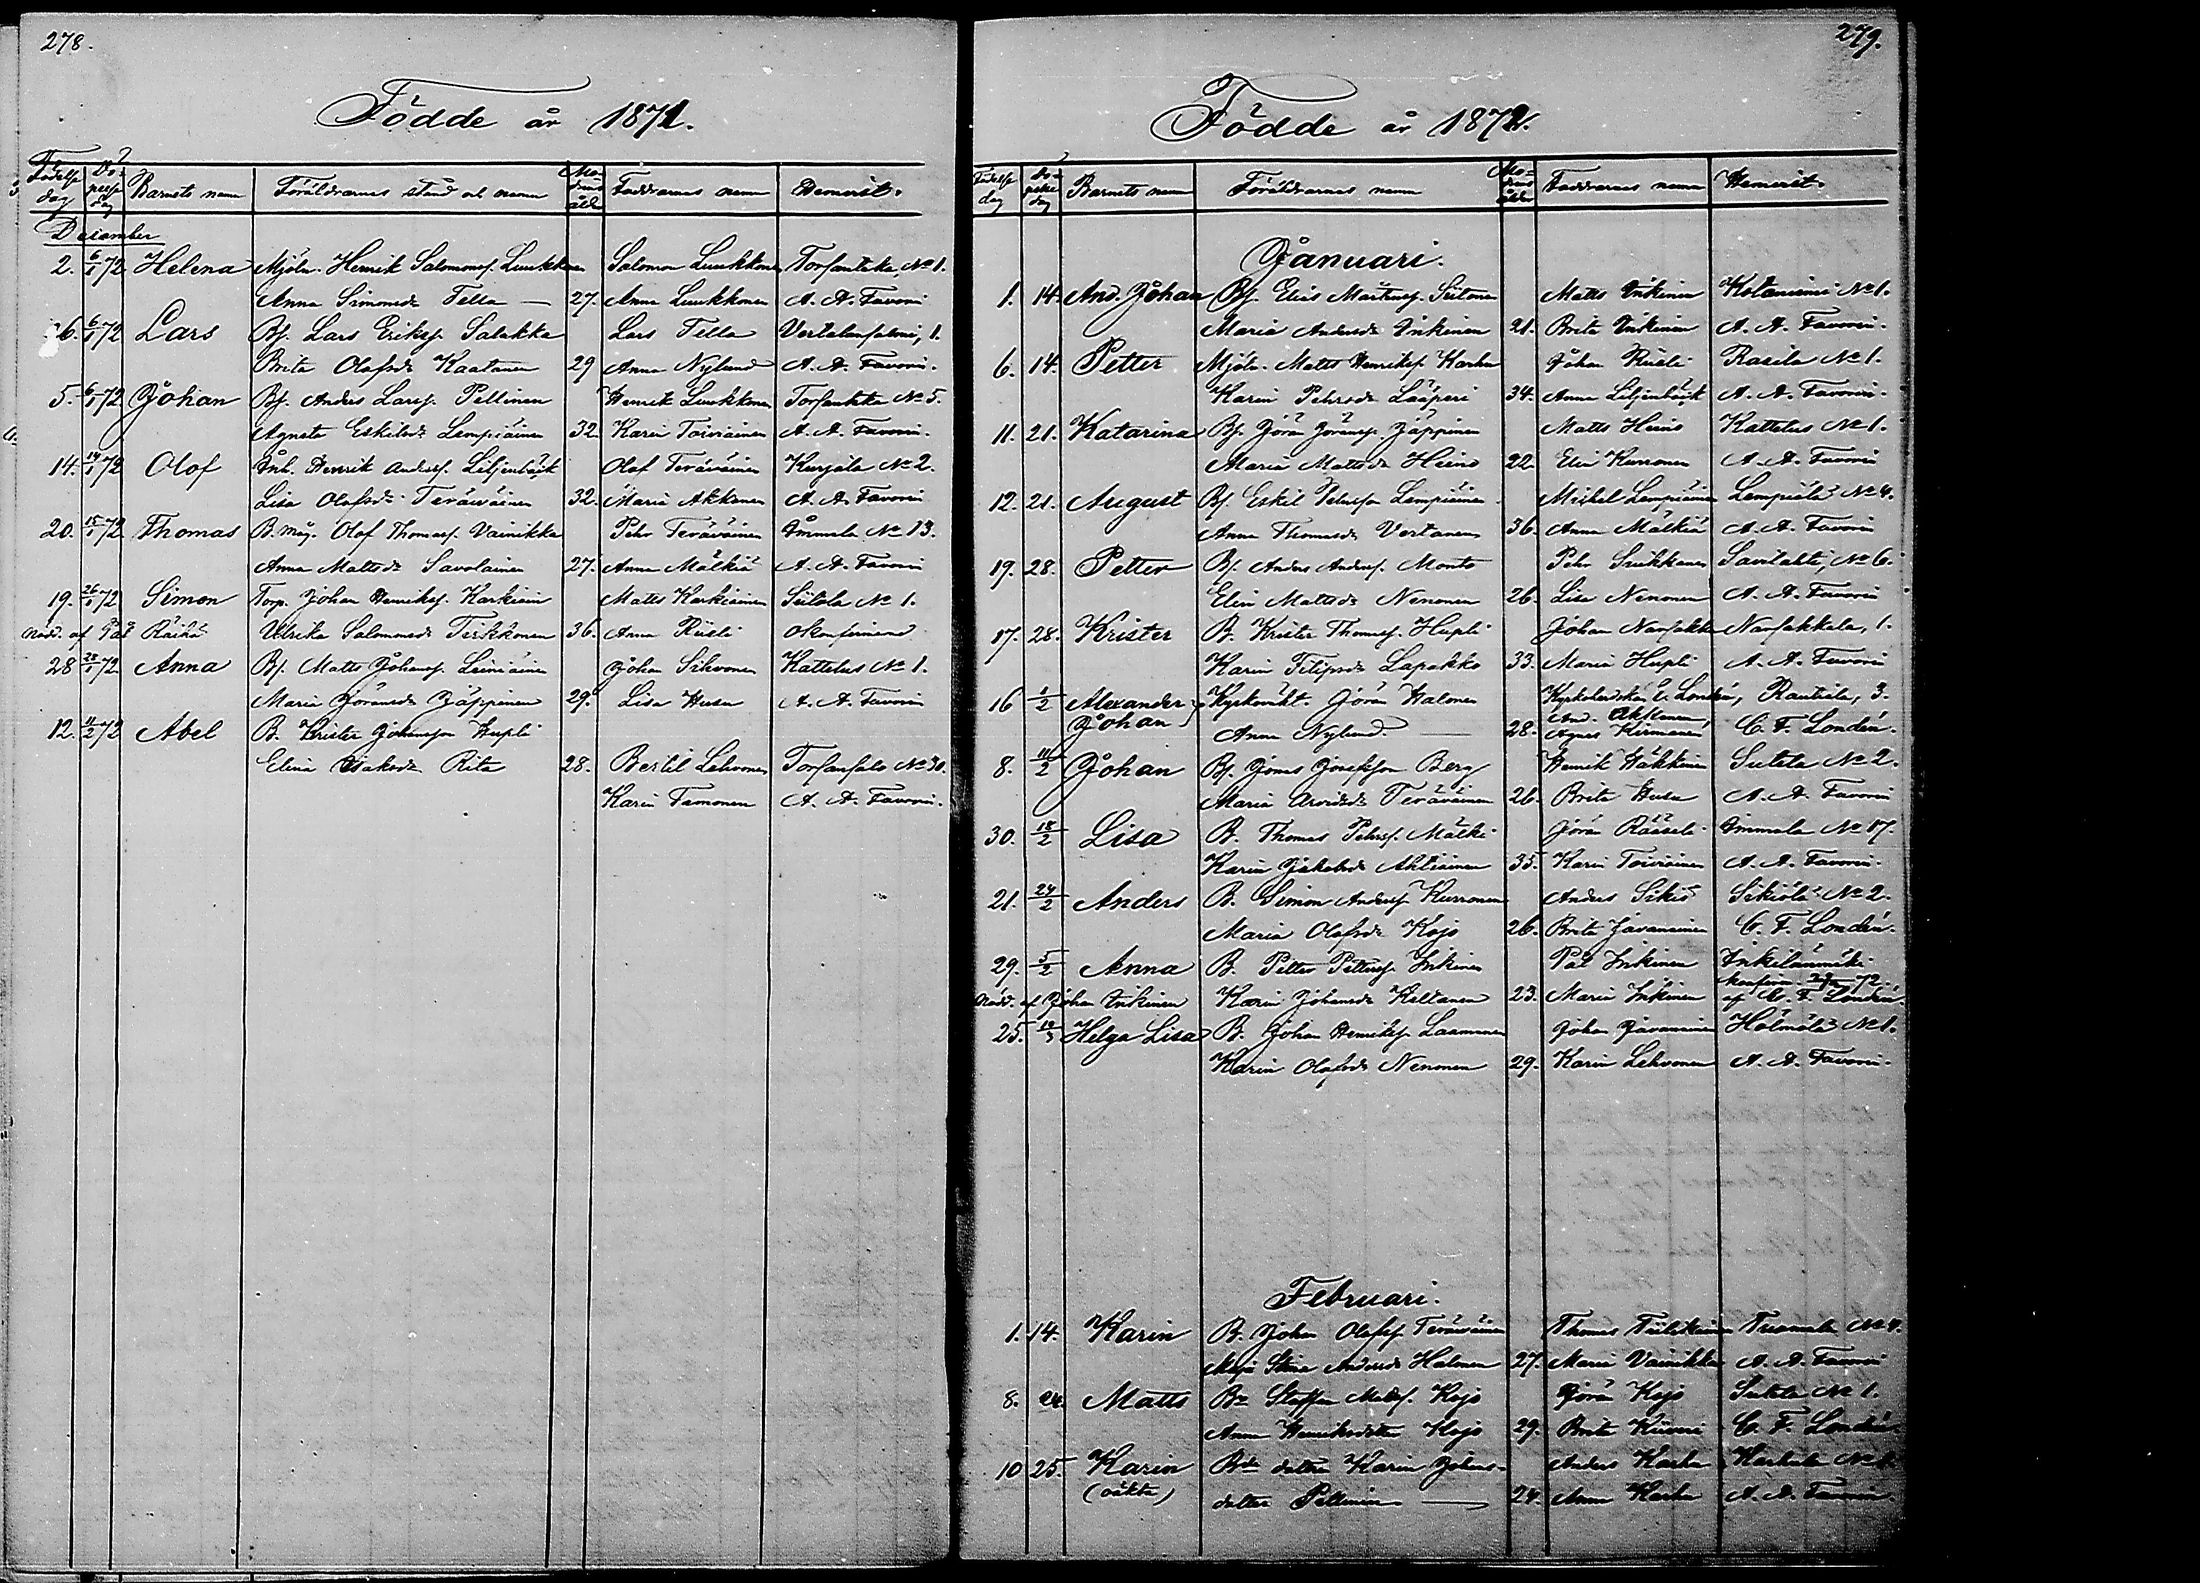 278.
Födde år 1871.
Födelse dag Dopelse dag Barnets namn Föräldrarnes stånd och namn Modrens ålder Faddrarnes namn Hemvist.
December
2. 6/1 72 Helena Mjöln. Henrik Salomonsf. Luukkonen Salomon Luukkonen Torsantaka, No 1.
Anna Simonsdr Tella — 27. Anna Luukkonen A. A. Favorin
6. 6/1 72 Lars Bf. Lars Eriksf. Salakka Lars Tella 1.
Brita Olofsdr Kaatanen 29 Anna Nylund A. A. Favorin.
5. 6/1 72 Johan Bf. Anders Larsf. Pellinen Henrik Luukkonen Torsantaka No 5.
Agneta Eskilsdr Lempiäinen 32 Karin Toiviainen A. A. Favorin.
14. 14/1 72 Olof Inh. Henrik Andersf. Liljenbäck Olof Teräväinen Kurjala No 2.
Lisa Olofsdr Teräväinen 32. Maria Akkanen A. A. Favorin
20. 15/1 72 Thomas B. måg. Olof Thomasf. Vainikka Pehr Teräväinen Immala No 13.
Anna Mattsdr Savolainen 27. Anna Mälkiä A. A. Favorin
19. 26/1 72 Simon Torp. Johan Henriksf. Karkiain Matts Karkiainen Siitola No 1.
Nödd. af Pål Räihä Ulrika Salomonsdr Tirkkonen 36. Anna Rusli okonfirmerad
28 28/1 72 Anna Bf. Matts Johansf. Leiniäinen Johan Sihvonen Kattelus No 1.
Maria Jöransdr Jäppinen 29. Lisa Husu A. A. Favorin
12. 11/2 72 Abel B. Krister Johansson Hupli
Elina Isaksdr Rita 28. Bertil Lehvonen Torsansalo No 30.
Karin Tamonen A. A. Favorin.
279.
Födde år 1872.
Födelse dag Dopelse dag Barnets namn Föräldrarnes namn Modrens ålder Faddrarnes namn Hemvist.
Januari.
1. 14. And. Johan Bf. Elias Mårtensf. Siitonen Matts Inkinen Kotaniemi No 1.
Maria Andersdr Inkinen 21. Brita Inkinen A. A. Favorin.
6. 14. Petter Mjöln. Matts Henriksf. Karhu Johan Rusli Rasila No 1.
Karin Pehrsdr Lääperi 34. Anna Liljenbäck A. A. Favorin.
11. 21. Katarina Bf. Jöran Jöransf. Jäppinen Matts Heino Kattelus No 1.
Maria Mattsdr Heino 22. Elin Kurronen A. A. Favorin
12. 21. August Bf. Eskil Pehrsson Lempiäinen Mickel Lempiäinen Lempiälä No 4.
Anna Thomasdr Vertanen 36. Anna Mälkiä A. A. Favorin
19. 28. Petter Bf. Anders Andersf. Monto Pehr Suikkanen Savilahti, No 6.
Elin Mattsdr Nenonen 26. Lisa Nenonen A. A. Favorin
17. 28. Krister B. Krister Thomasf. Hupli Johan Narsakka Narsakkala, 1.
Karin Filipsdr Lapakko 33. Maria Hupli A. A. Favorin
16 1/2 Alexander Johan Kyrkovakt. Jöran Halonen E. Londén, Rautiala, 3.
Anna Nylund — 28. And. Akkanen, Agnes Kirmanen C. F. Londén.
8. 11/2 Johan Bf. Jonas Josefsson Berg Henrik Häkkinen Suitela No 2.
Maria Arvidsdr Teräväinen 26. Brita Husu A. A. Favorin
30. 18/2 Lisa B. Thomas Pehrsf. Mälki Jöran Rääseli Immala No 17.
Karin Jakobsdr Ahtiainen 35. Karin Toiviainen A. A. Favorin.
21. 24/2 Anders B. Simon Andersf. Kurronen Anders Sikiö Sikiölä No 2.
Maria Olofsdr Kojo 26. Brita Javanainen C. F. Londén.
29. 5/2 Anna B. Petter Pettersf. Inkinen Pål Inkinen Inkilänmäki
Nödd. af Johan Inkinen Karin Johansdr Keltanen 23. Maria Inkinen konfirm. 72 af C. F. Londén.
25. 10/3 Helga Lisa B. Johan Henriksf. Laamanen Johan Javanainen Hölmölä No 1.
Karin Olofsdr Nenonen 29. Karin Lehvonen A. A. Favorin.
Februari.
1. 14. Karin B. Johan Olofsf. Teräväinen Thomas Tiilikainen Tuomala No 4.
Maja Stina Andersdr Halonen 27. Maria Vainikka A. A. Favorin
8. 24. Matts Bn Staffan Mattsf. Kojo Jöran Kojo Suitela No 1.
Anna Henriksdotter Kojo 29. Brita Kiiveri C. F. Londén.
10 25. Karin Bde dotter Karin Johans- Anders Karhu Karhula No 1.
(oäkta) dotter Pellinen — 24. Anna Karhu A. A. Favorin.